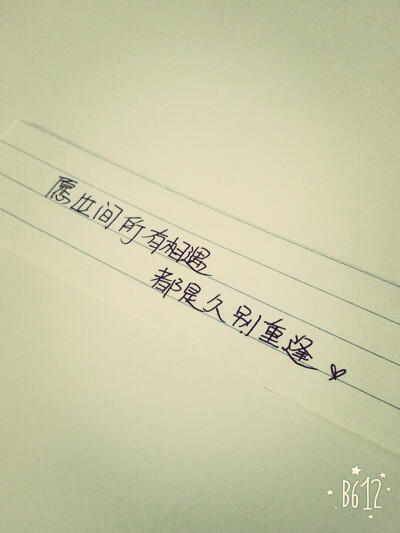 愿世间所有相遇
都是久别重逢
B612